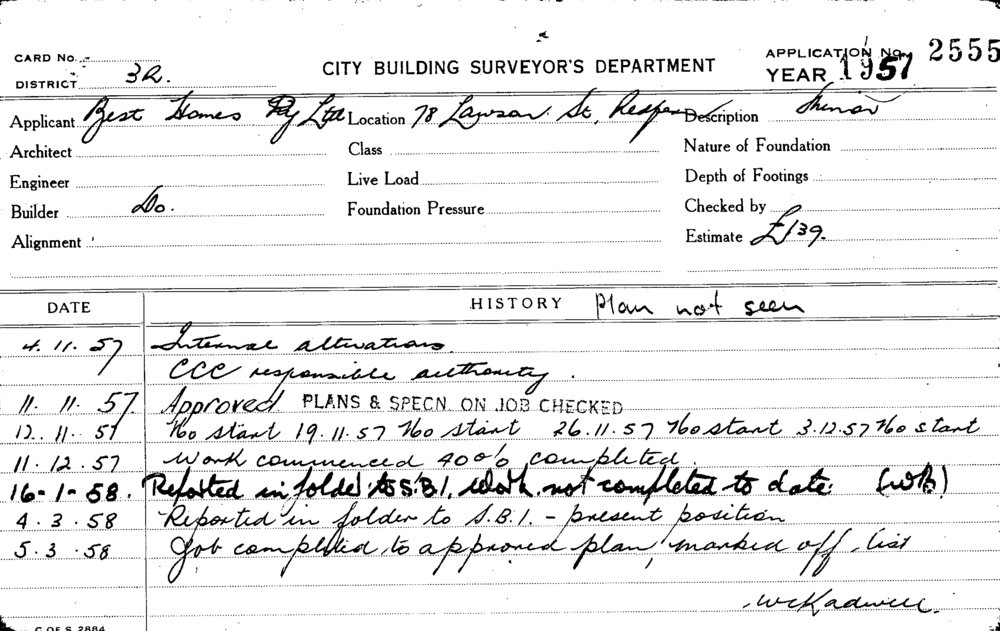 CARD No.
DISTRICT 3R.
CITY BUILDING SURVEYOR'S DEPARTMENT
APPLICATION No. 2555
YEAR 1957
Applicant Best Homes Pty Ltd Location 78 Lawson St, Description
Architect Class Nature of Foundation
Engineer Live Load Depth of Footings
Builder Do. Foundation Pressure Checked by
Alignment Estimate £139.
DATE HISTORY Plan not seen
4.11.57 Internal alterations.
CCC responsible authority.
11.11.57 Approved PLANS & SPECN. ON JOB CHECKED
12.11.57 No start 19.11.57 No start 26.11.57 No start 3.12.57 No start
11.12.57 Work commenced 40% completed.
16-1-58. Reported in folder to S.B.I. Work not completed to date.
4.3.58 Reported in folder to S.B.I. - present position
5.3.58 Job completed to approved plan, marked off list
C OF S 2884